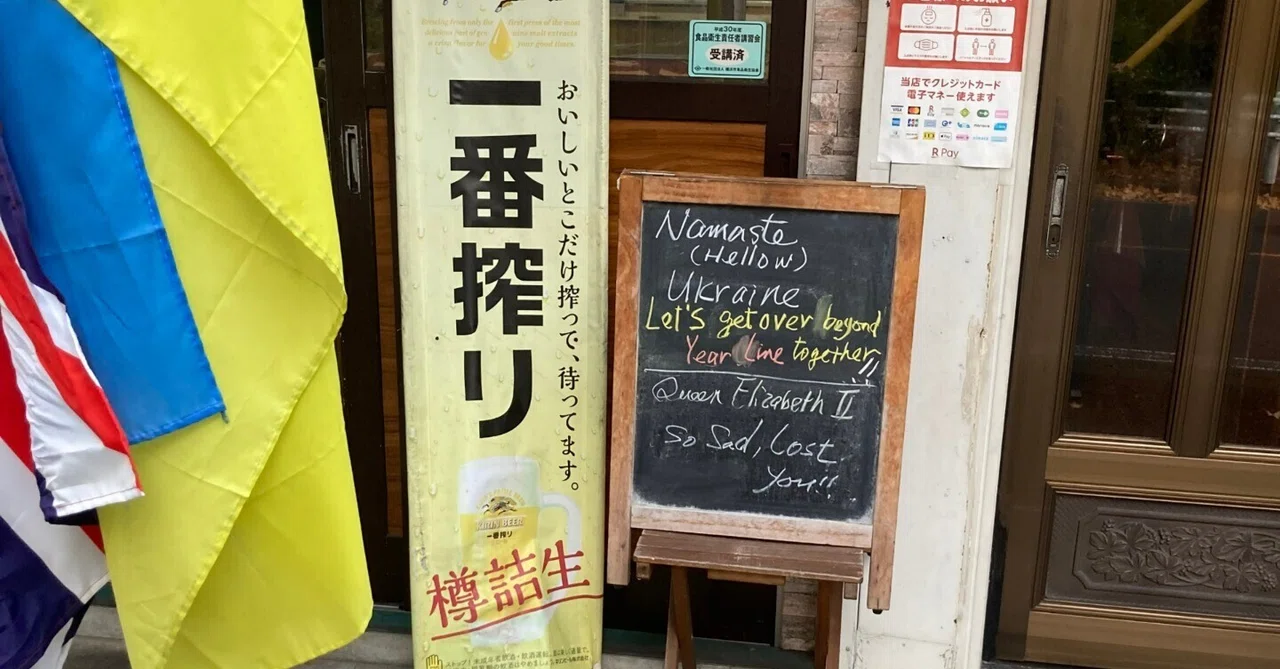 Brewing from only the
first press of the most
一番搾り
おいしいとこだけ搾って、待ってます。
KIRIN BEER
一番搾り
樽詰生
平成30年度
食品衛生責任者講習会
受講済
当店でクレジットカード
電子マネー使えます
VISA
R Pay
Namaste
(Hellow)
Ukraine
Let's get over beyond
Year Line together!!
Queen Elizabeth II
So Sad, Lost
You!!